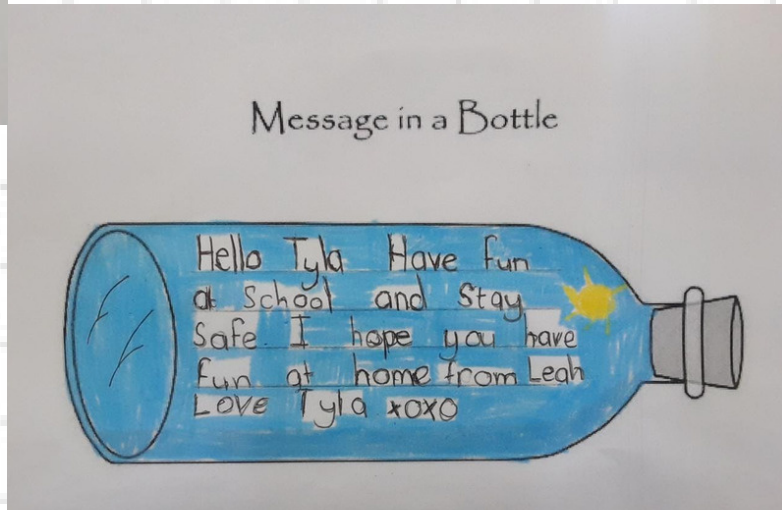 Message in a Bottle
Hello Tyla Have fun
at School and Stay
Safe. I hope you have
fun at home from Leah
Love Tyla xoxo